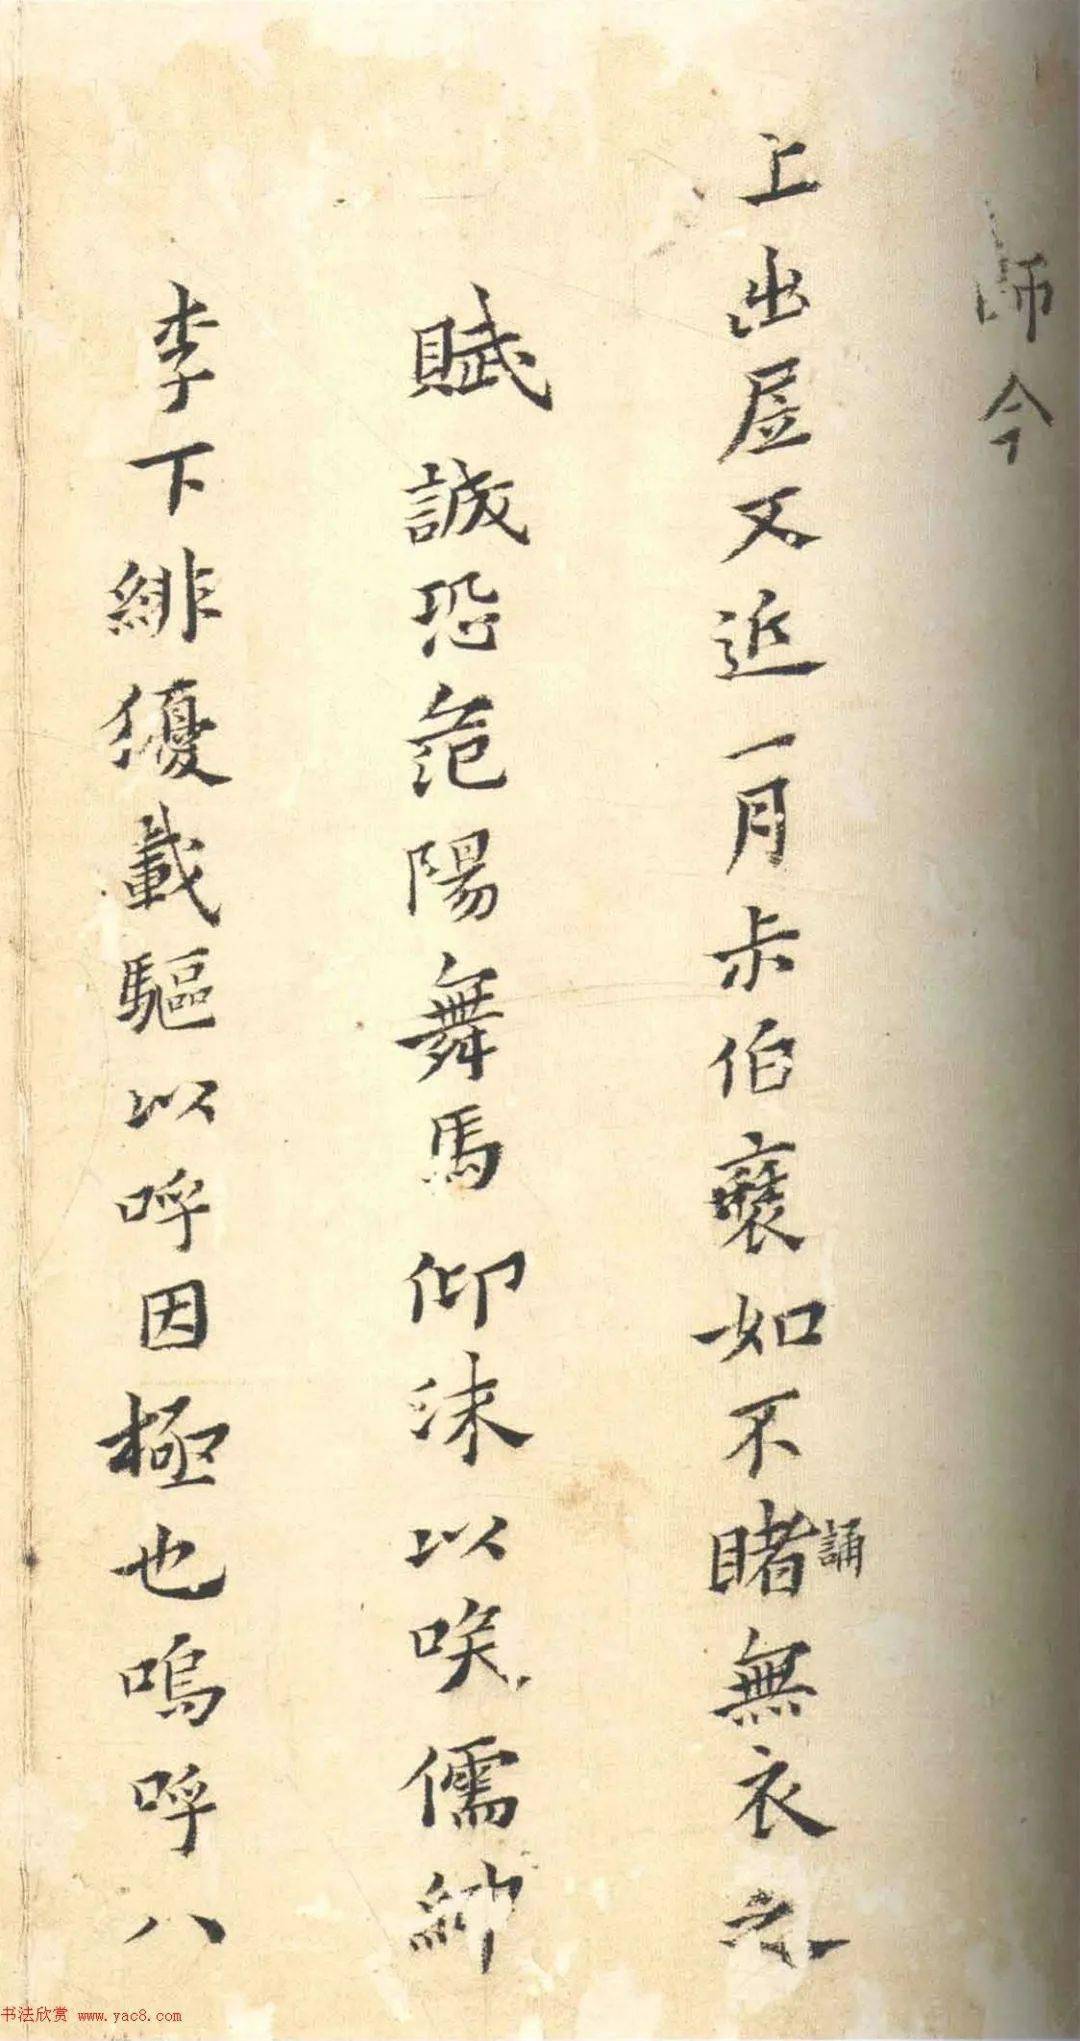 師今
上出屋又近一月未伯褎如不睹誦無衣之
賦誠恐范陽舞馬仰沫以唉儒紳
李下緋優載驅以呼因極也嗚呼八
书法欣赏 www.yac8.com